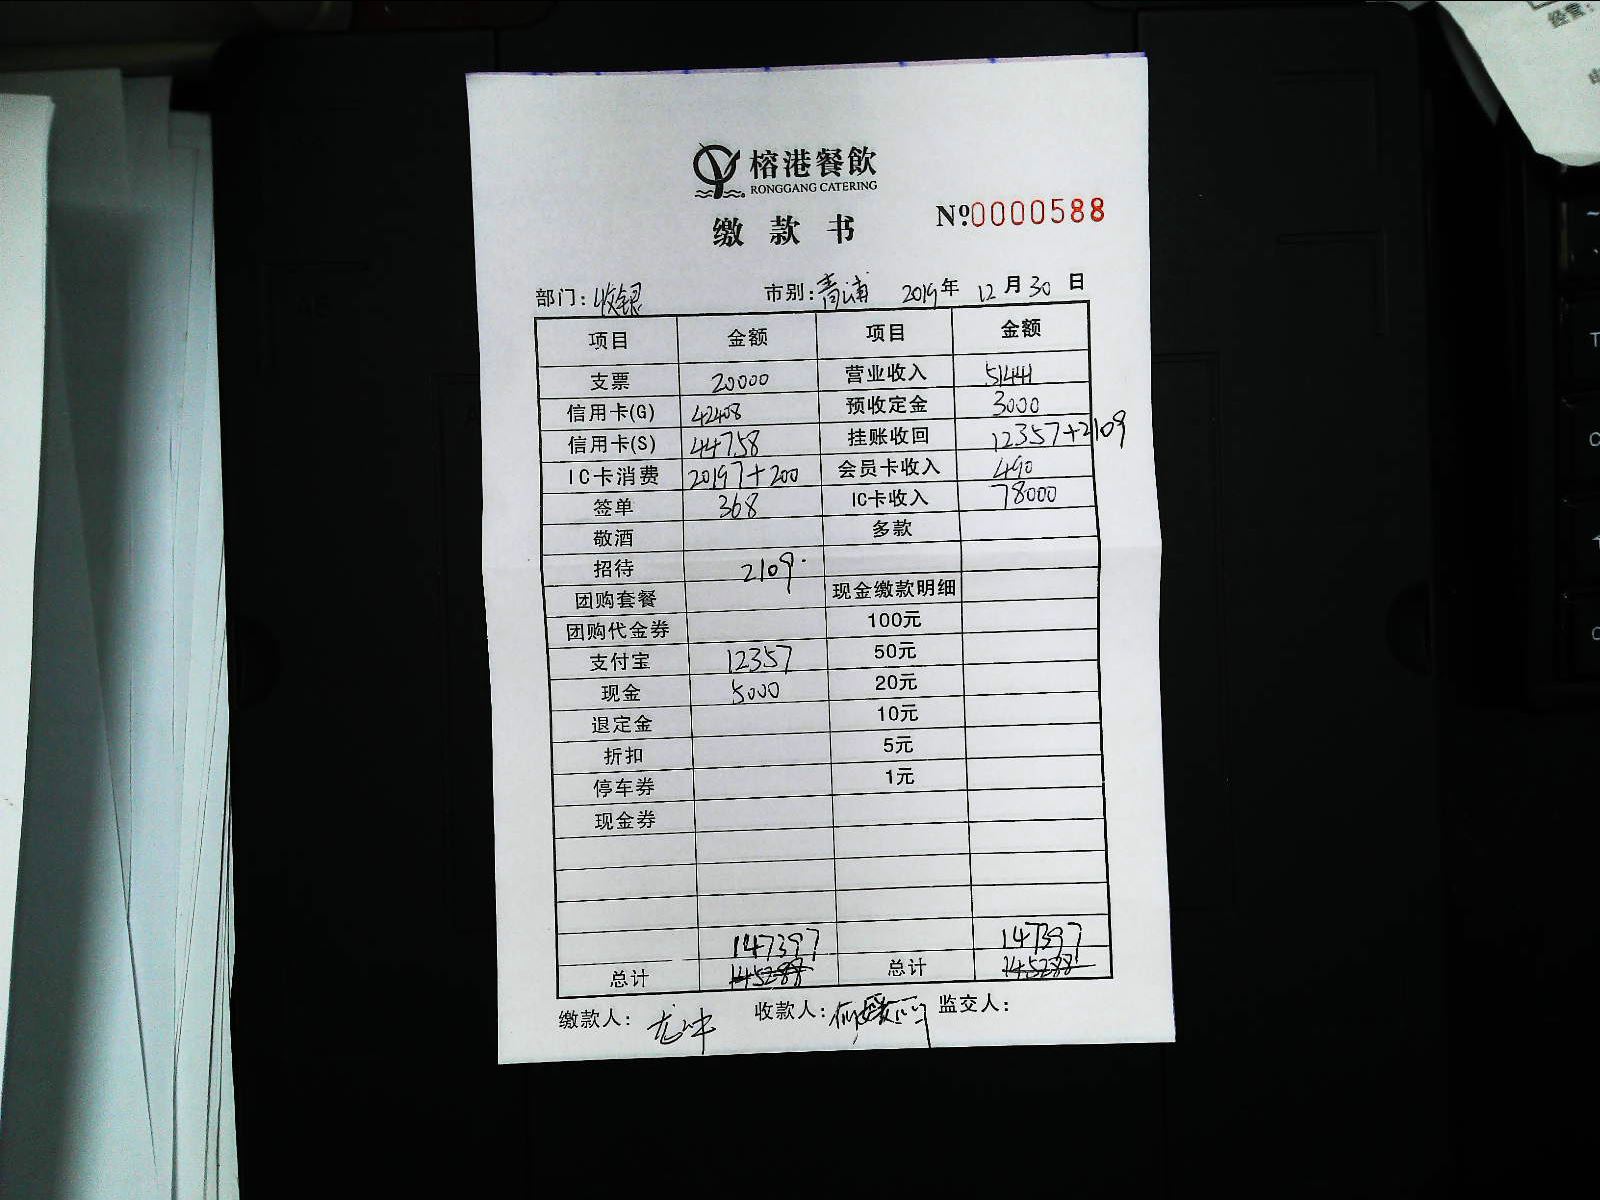 榕港餐飲
RONGGANG CATERING
缴款书
Nº0000588
部门:收银 市别:青浦 2019年12月30日
项目 金额 项目 金额
支票 20000 营业收入 51441
信用卡(G) 42408 预收定金 3000
信用卡(S) 44758 挂账收回 12357+2109
IC卡消费 20197+200 会员卡收入 490
签单 368 IC卡收入 78000
敬酒 多款
招待 2109
团购套餐 现金缴款明细
团购代金券 100元
支付宝 12357 50元
现金 5000 20元
退定金 10元
折扣 5元
停车券 1元
现金券
147397 147397
总计 145288 总计 145288
缴款人: 收款人: 监交人:
经营: